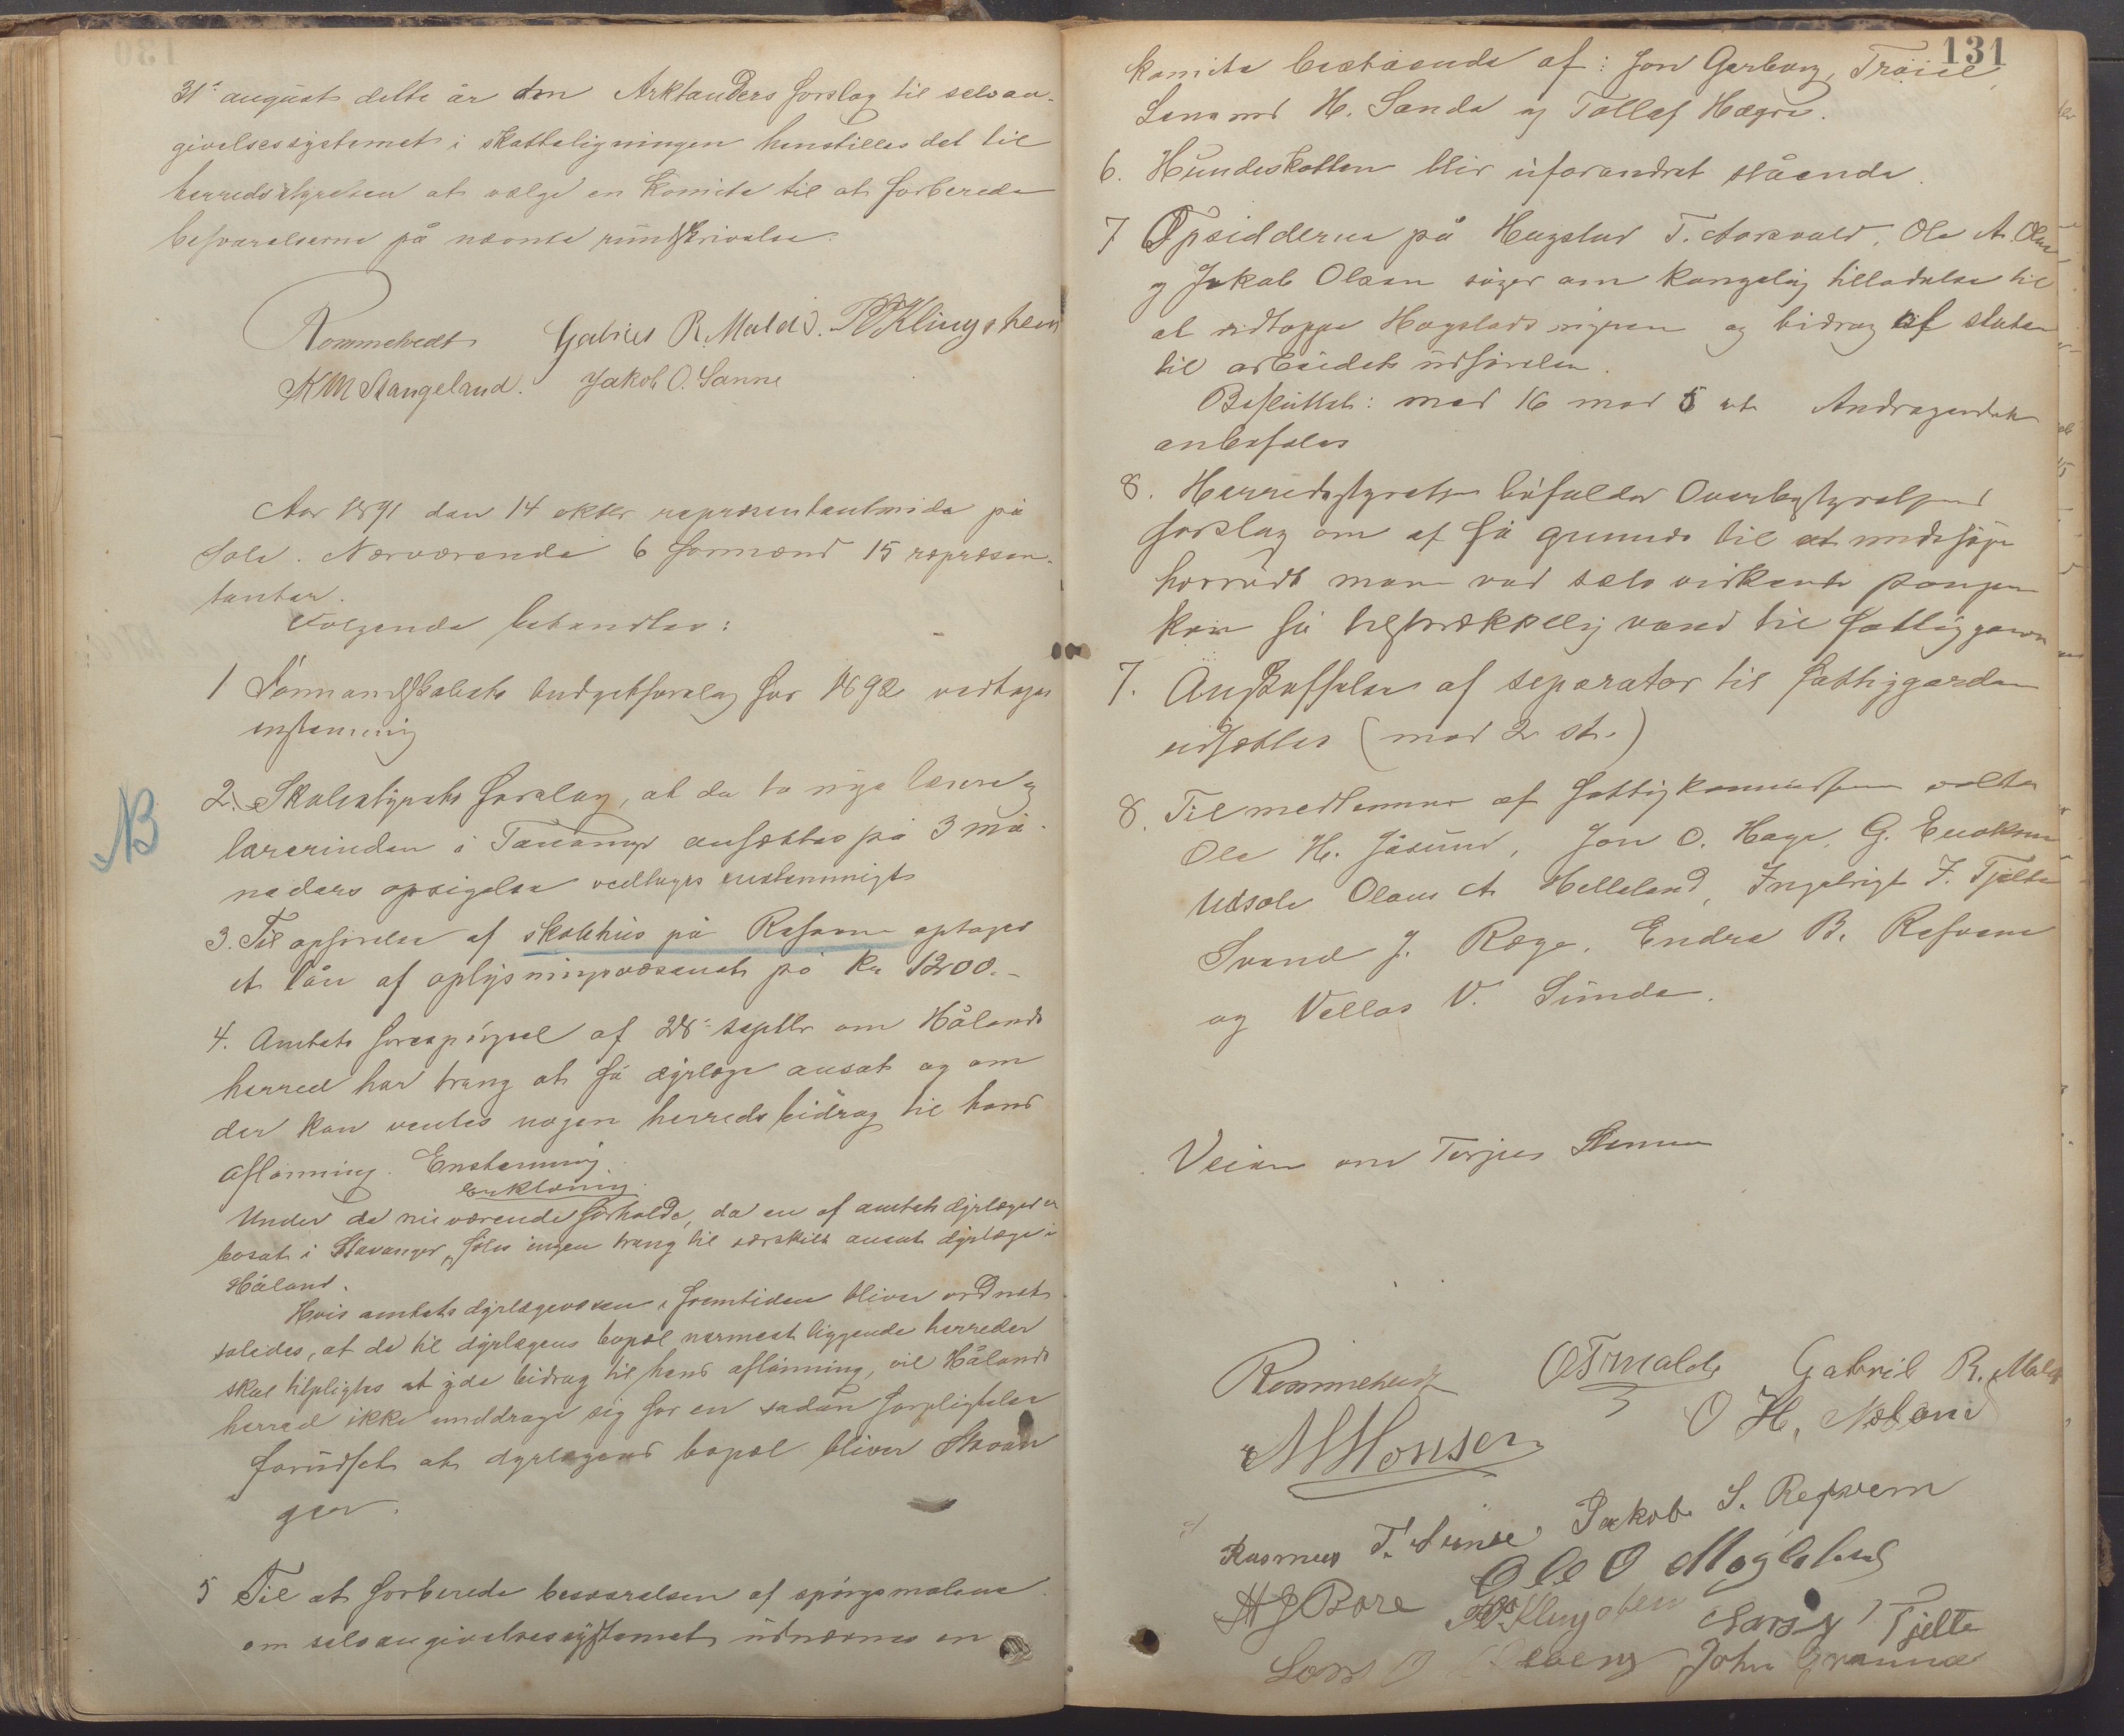 31ᵗᵉ august dette år om Arktanders forslag til selvan-
givelsessystemet i skatteligningen henstilles det til
herredsstyrelsen at vælge en komite til at forberede
besvarelserne på nævnte rundskrivelse.
Rommetvedt Gabriel R. Malde. Klingsheim
KM Stangeland. Jakob O. Sanne
Aar 1891 den 14 oktbr repræsentantmøde på
Sole. Nærværende 6 formænd 15 repræsen-
tanter.
Følgende behandles:
1 Formandskabets budgetforslag for 1892 vedtages
enstemmig
NB
2. Skolestyrets forslag, at de to nye lærere og
lærerinden i Tananger ansættes på 3 må-
neders opsigelse vedtages enstemmigt
3. Til opførelse af skolehus på Refsnes optages
et lån af oplysningsvæsenet på kr 1200.-
4. Amtets forespørgsel af 28ᵈᵉ septbr om Hålands
herred har trang at få dyrlæge ansat og om
der kan ventes nogen herreds bidrag til hans
aflønning. Enstemmig
erklæring.
Under de nuværende forholde, da en af amtets dyrlæger er
bosat i Stavanger, føles ingen trang til særskilt ansat dyrlæge i
Håland.
Hvis amtets dyrlægevæsen i fremtiden bliver ordnet
således, at de til dyrlægens bopæl nærmest liggende herreder
skal tilpligtes at yde bidrag til hans aflønning, vil Hålands
herred ikke unddrage sig for en sådan forpligtelse
forudsat at dyrlægens bopæl bliver Stavan
ger.
5 Til at forberede besvarelsen af spørgsmålene
om selvangivelsessystemet udnævnes en
131
komite bestaaende af: Jon Garborg,
Lensmd H. Sande og Tollef Hægre.
6. Hundeskatten blir uforandret stående.
7 Opsidderne på Hagstad T. Aarsvold, Ole A. Olsen
og Jakob Olsen søger om kongelig tilladelse til
at udtappe Hagstads og bidrag af staten
til arbeidets udførelse.
Besluttet: med 16 mod 5 st. Andragendet
anbefales
8. Herredsstyrelsen bifalder Overbestyrelsens
forslag om at få grunde til at undersøge
hvorvidt man ved selv virkende pumpe
kan få tilstrækkelig vand til fattiggaarden
7. Anskaffelse af separator til fattiggarden
udsættes (mod 2 st.)
8. Til medlemmer af fattigkommissionen valtes
Ole H. Jåsund, Jon O. Haga, G. Enoksen
Udsole Olaus A Helleland, Ingebrigt J. Tjelta
Svend J. Ræge, Endre B. Refsnes
og Vellas V. Sunde.
Veien om Torjus Stemmen
Rommetvedt O Tmalde Gabriel R. Malde
M Monsen O H, Meland
Rasmus T. Sunde Jakob S. Refsnes
H J Bore Ole O Møgleland
Klingsheim Tjelta
Lars O John Grannes